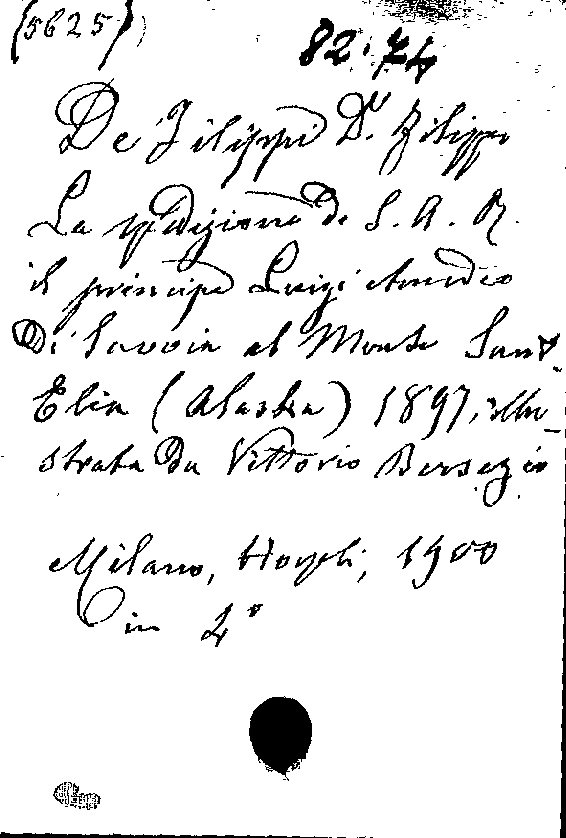 (5625)
82.74
De Filippi Dr. Filippo
La spedizione di S. A. R.
il principe Luigi Amedeo
Di Savoia al Monte Sant'
Elia (Alaska) 1897, illu-
strata da Vittorio Bersezio
Milano, Hoepli, 1900
in 4°